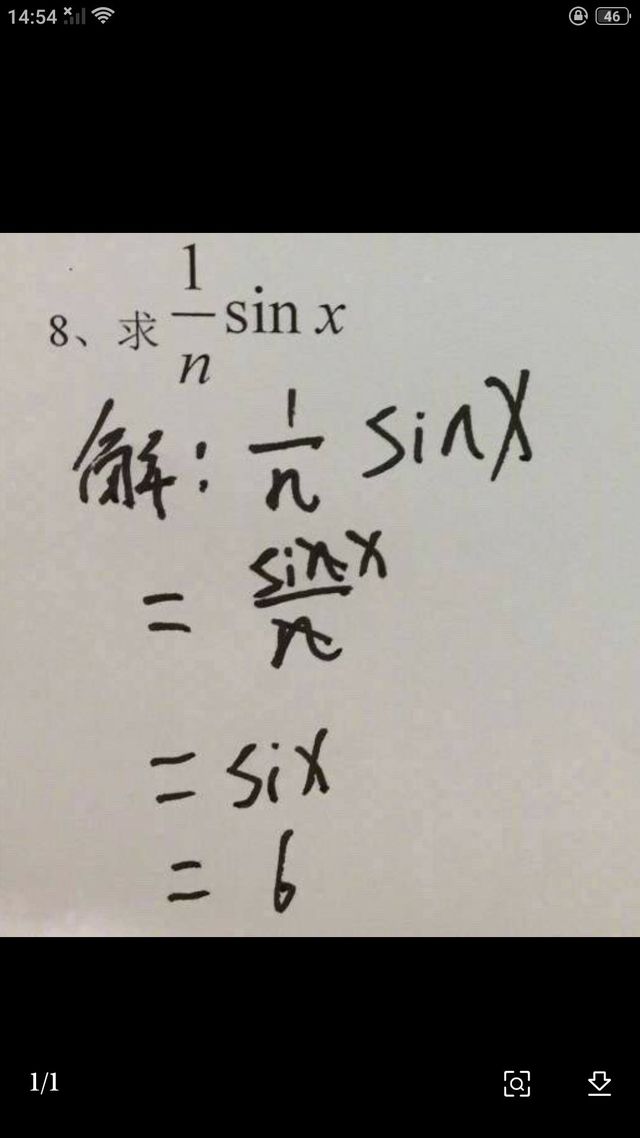 14:54
46
8、求 \frac{1}{n} sin x
解: \frac{1}{n} sin x
= \frac{sin x}{n}
= six
= 6
1/1